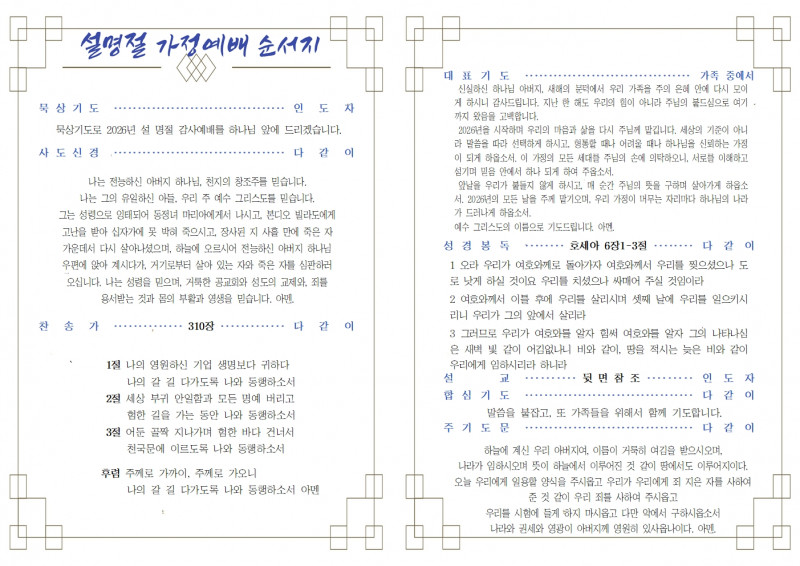 설명절 가정예배 순서지
묵상기도 ························· 인 도 자
묵상기도로 2026년 설 명절 감사예배를 하나님 앞에 드리겠습니다.
사도신경 ························· 다 같 이
나는 전능하신 아버지 하나님, 천지의 창조주를 믿습니다.
나는 그의 유일하신 아들, 우리 주 예수 그리스도를 믿습니다.
그는 성령으로 잉태되어 동정녀 마리아에게서 나시고, 본디오 빌라도에게
고난을 받아 십자가에 못 박혀 죽으시고, 장사된 지 사흘 만에 죽은 자
가운데서 다시 살아나셨으며, 하늘에 오르시어 전능하신 아버지 하나님
우편에 앉아 계시다가, 거기로부터 살아 있는 자와 죽은 자를 심판하러
오십니다. 나는 성령을 믿으며, 거룩한 공교회와 성도의 교제와, 죄를
용서받는 것과 몸의 부활과 영생을 믿습니다. 아멘.
찬 송 가 ············ 310장 ············ 다 같 이
1절 나의 영원하신 기업 생명보다 귀하다
나의 갈 길 다가도록 나와 동행하소서
2절 세상 부귀 안일함과 모든 명예 버리고
험한 길을 가는 동안 나와 동행하소서
3절 어둔 골짝 지나가며 험한 바다 건너서
천국문에 이르도록 나와 동행하소서
후렴 주께로 가까이, 주께로 가오니
나의 갈 길 다가도록 나와 동행하소서 아멘
대 표 기 도 ························· 가족 중에서
신실하신 하나님 아버지, 새해의 문턱에서 우리 가족을 주의 은혜 안에 다시 모이
게 하시니 감사드립니다. 지난 한 해도 우리의 힘이 아니라 주님의 붙드심으로 여기
까지 왔음을 고백합니다.
2026년을 시작하며 우리의 마음과 삶을 다시 주님께 맡깁니다. 세상의 기준이 아니
라 말씀을 따라 선택하게 하시고, 형통할 때나 어려울 때나 하나님을 신뢰하는 가정
이 되게 하옵소서. 이 가정의 모든 세대를 주님의 손에 의탁하오니, 서로를 이해하고
섬기며 믿음 안에서 하나 되게 하여 주옵소서.
앞날을 우리가 붙들지 않게 하시고, 매 순간 주님의 뜻을 구하며 살아가게 하옵소
서. 2026년의 모든 날을 주께 맡기오며, 우리 가정이 머무는 자리마다 하나님의 나라
가 드러나게 하옵소서.
예수 그리스도의 이름으로 기도드립니다. 아멘.
성 경 봉 독 ········· 호세아 6장1-3절 ········ 다 같 이
1 오라 우리가 여호와께로 돌아가자 여호와께서 우리를 찢으셨으나 도
로 낫게 하실 것이요 우리를 치셨으나 싸매어 주실 것임이라
2 여호와께서 이틀 후에 우리를 살리시며 셋째 날에 우리를 일으키시
리니 우리가 그의 앞에서 살리라
3 그러므로 우리가 여호와를 알자 힘써 여호와를 알자 그의 나타나심
은 새벽 빛 같이 어김없나니 비와 같이, 땅을 적시는 늦은 비와 같이
우리에게 임하시리라 하니라
설 교 ··········· 뒷 면 참 조 ·········· 인 도 자
합 심 기 도 ························· 다 같 이
말씀을 붙잡고, 또 가족들을 위해서 함께 기도합니다.
주 기 도 문 ························· 다 같 이
하늘에 계신 우리 아버지여, 이름이 거룩히 여김을 받으시오며,
나라가 임하시오며 뜻이 하늘에서 이루어진 것 같이 땅에서도 이루어지이다.
오늘 우리에게 일용할 양식을 주시옵고 우리가 우리에게 죄 지은 자를 사하여
준 것 같이 우리 죄를 사하여 주시옵고
우리를 시험에 들게 하지 마시옵고 다만 악에서 구하시옵소서
나라와 권세와 영광이 아버지께 영원히 있사옵나이다. 아멘.